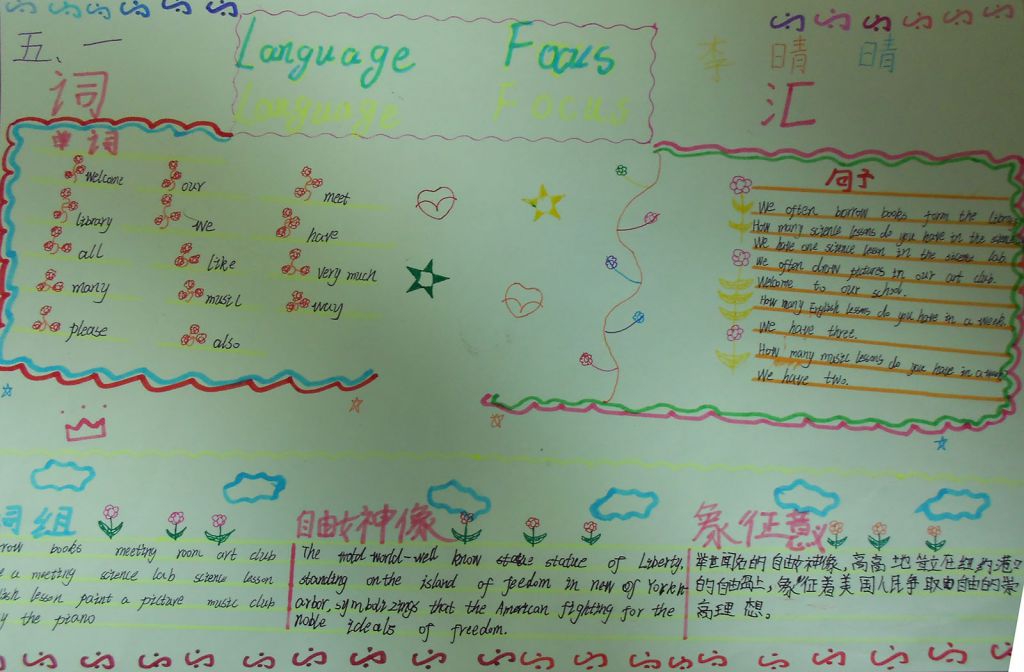 五、一
Language Focus
Language Focus
李 晴 晴
词 汇
单词
welcome our meet
library we have
all like very much
many music way
please also
句子
We often borrow books form the
How many science lessons do you have in the
We have one science lesson in the science lab.
We often draw pictures in our art club.
Welcome to our school.
How many English lessons do you have in a week.
We have three.
How many music lessons do you have in a week
We have two.
词组
rrow books meeting room art club
e a meeting science lab science lesson
lish lesson paint a picture music club
y the piano
自由女神像
The world-well know statue of Liberty.
standing on the island of feedom in new of York
arbor, symbolizings that the American fighting for the
noble ideals of freedom.
象征意义
举世闻名的自由神像，高高地竖立在纽约港口
的自由岛上，象征着美国人民争取自由的崇
高理想。